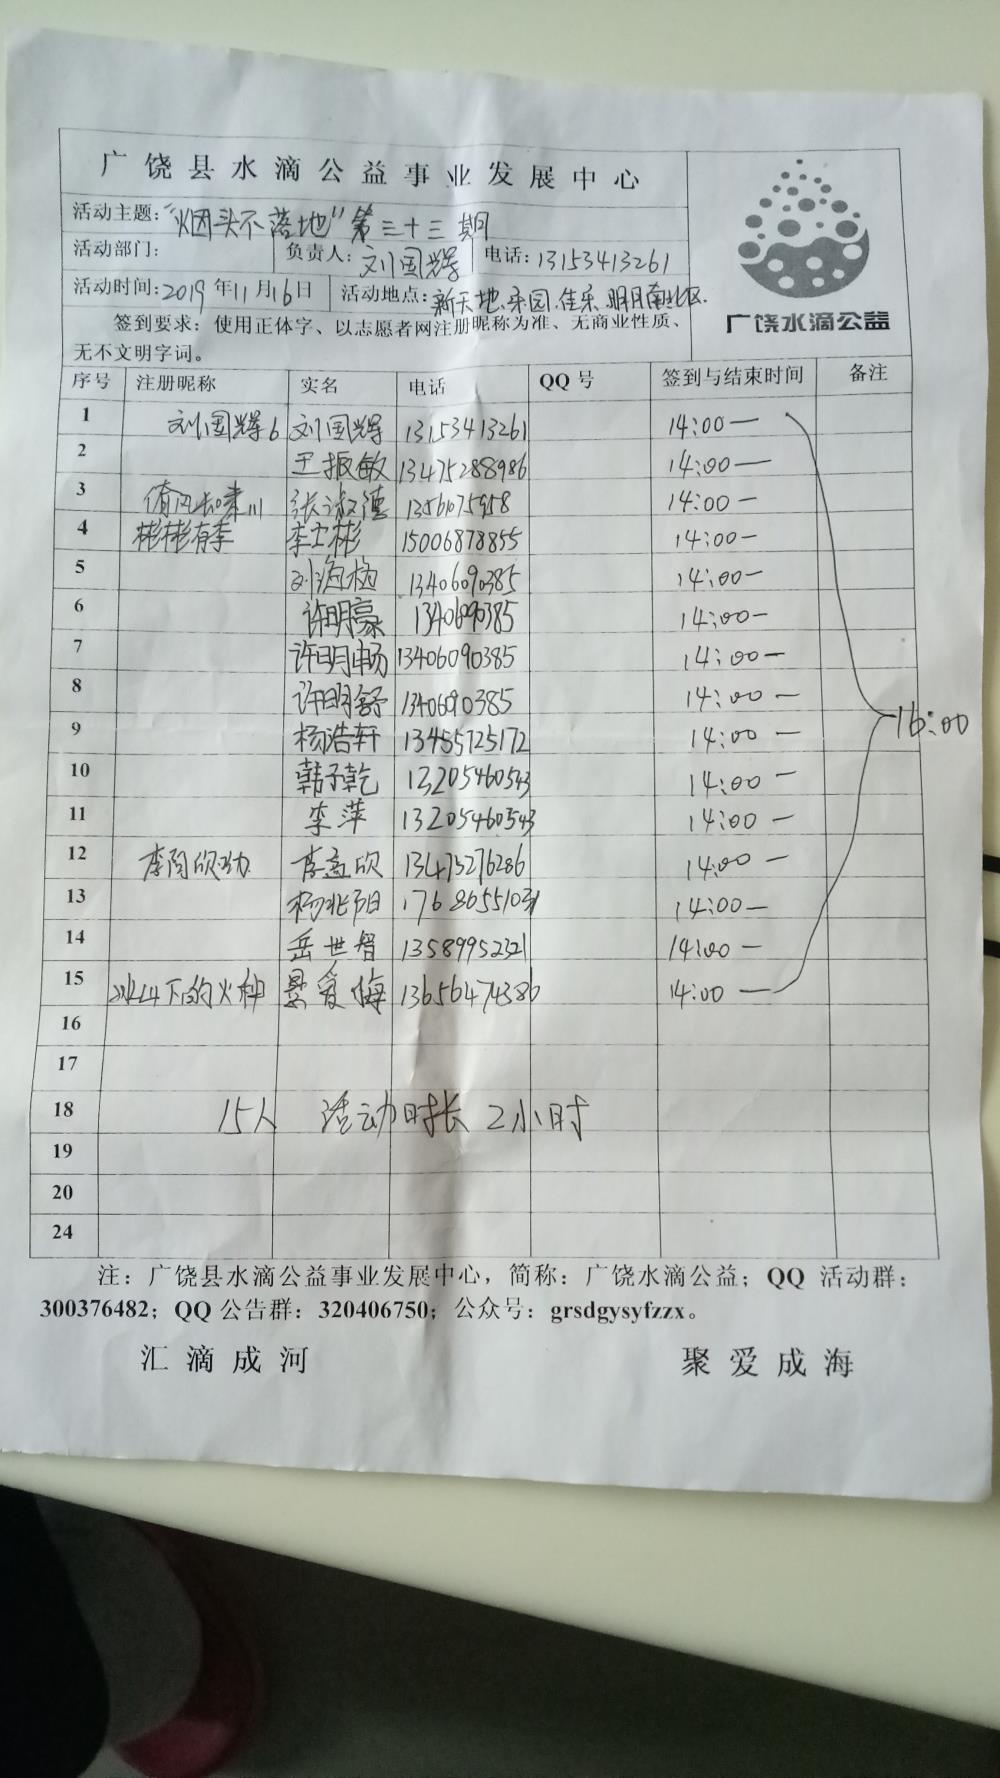 广饶县水滴公益事业发展中心
活动主题:"烟头不落地"第三十三期
活动部门: 负责人: 刘国辉 电话:13153413261
活动时间:2019年11月16日 活动地点:新天地、乐园、佳乐、明月南北区.
签到要求：使用正体字、以志愿者网注册昵称为准、无商业性质、
无不文明字词。
广饶水滴公益
序号 注册昵称 实名 电话 QQ号 签到与结束时间 备注
1 刘国辉6 刘国辉 13153413261 14:00—
2 王振敏 13475288986 14:00—
3 倚风长啸川 张淑德 1356075958 14:00—
4 彬彬有李 李士彬 15006878855 14:00-
5 刘海 13406090385 14:00-
6 许明豪 13406090385 14:00-
7 许明畅 13406090385 14:00-
8 许明舒 13406090385 14:00-
9 杨浩轩 13455725172 14:00-
16:00
10 韩子乾 13205460543 14:00-
11 李萍 13205460543 14:00-
12 李 欣 13475276286 14:00-
13 杨 17686551031 14:00-
14 岳世智 13589952321 14:00-
15 冰山下的火种 爱梅 13656474386 14:00—
16
17
18 15人 活动时长 2小时
19
20
24
注：广饶县水滴公益事业发展中心，简称：广饶水滴公益；QQ 活动群：
300376482；QQ 公告群：320406750；公众号：grsdgysyfzzx。
汇滴成河 聚爱成海